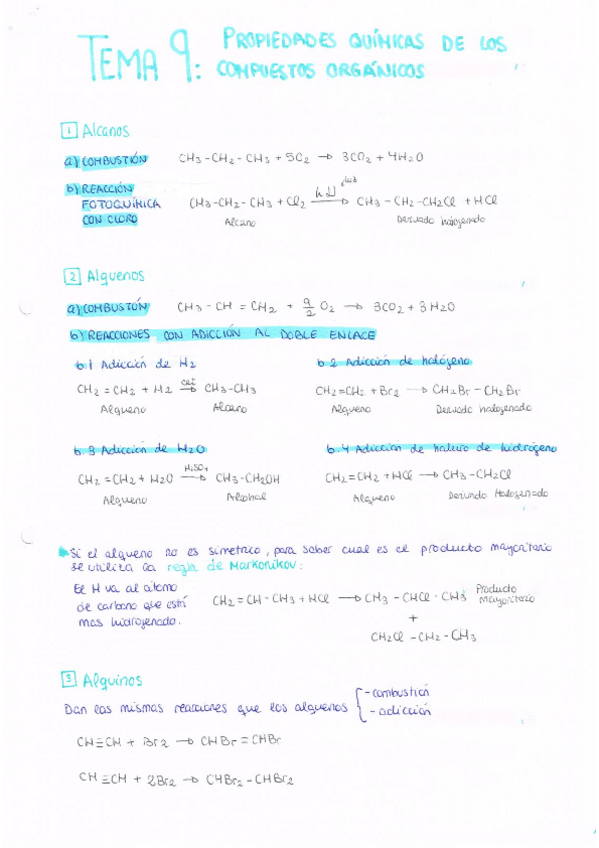 TEMA 9: PROPIEDADES QUÍMICAS DE LOS
COMPUESTOS ORGÁNICOS
1 Alcanos
a) COMBUSTIÓN CH3-CH2-CH3 + 5O2 → 3CO2 + 4H2O
b) REACCIÓN
FOTOQUÍMICA
CON CLORO
CH3-CH2-CH3 + Cl2 →(hν, luz) CH3-CH2-CH2Cl + HCl
Alcano Derivado halogenado
2 Alquenos
a) COMBUSTÓN CH3-CH=CH2 + 9/2 O2 → 3CO2 + 3H2O
b) REACCIONES CON ADICCIÓN AL DOBLE ENLACE
b.1 Adicción de H2
CH2=CH2 + H2 →(cat) CH3-CH3
Alqueno Alcano
b.2 Adicción de halógeno
CH2=CH2 + Br2 → CH2Br-CH2Br
Alqueno Derivado halogenado
b.3 Adicción de H2O
CH2=CH2 + H2O →(H2SO4) CH3-CH2OH
Alqueno Alcohol
b.4 Adicción de haluro de hidrógeno
CH2=CH2 + HCl → CH3-CH2Cl
Alqueno Derivado Halogenado
Si el alqueno no es simetrico, para saber cual es el producto mayoritario
se utiliza la regla de Markonikov:
El H va al átomo
de carbono que está
mas hidrogenado.
CH2=CH-CH3 + HCl → CH3-CHCl-CH3 Producto mayoritario
+
CH2Cl-CH2-CH3
3 Alquinos
Dan las mismas reacciones que los alquenos { -combustión
-adicción
CH≡CH + Br2 → CHBr=CHBr
CH≡CH + 2Br2 → CHBr2-CHBr2